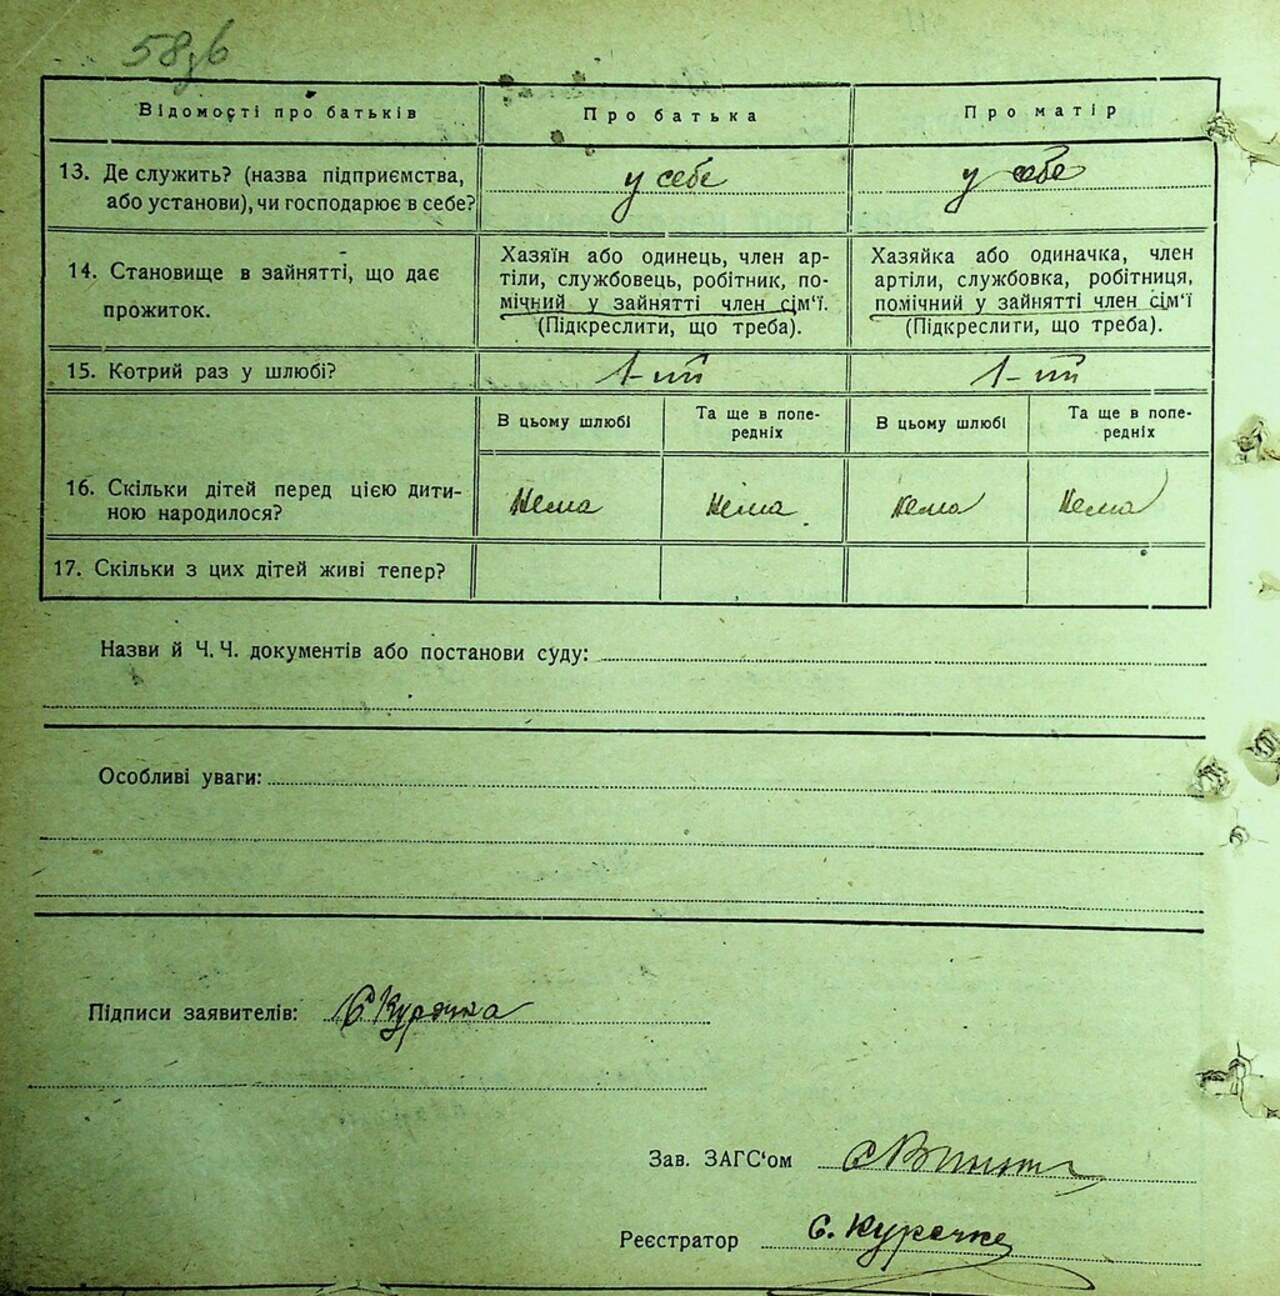 58зв
Відомості про батьків Про батька Про матір
13. Де служить? (назва підприємства, або установи), чи господарює в себе? у себе у себе
14. Становище в зайнятті, що дає прожиток.
Хазяїн або одинець, член ар-
тіли, службовець, робітник, по-
мічний у зайнятті член сім'ї.
(Підкреслити, що треба).
Хазяйка або одиначка, член
артіли, службовка, робітниця,
помічний у зайнятті член сім'ї
(Підкреслити, що треба).
15. Котрий раз у шлюбі? 1-ий 1-ий
В цьому шлюбі Та ще в попе-редніх В цьому шлюбі Та ще в попе-редніх
16. Скільки дітей перед цією дити-
ною народилося? Нема Нема Нема Нема
17. Скільки з цих дітей живі тепер?
Назви й Ч. Ч. документів або постанови суду:
Особливі уваги:
Підписи заявителів:
Зав. ЗАГС'ом
Реєстратор С.